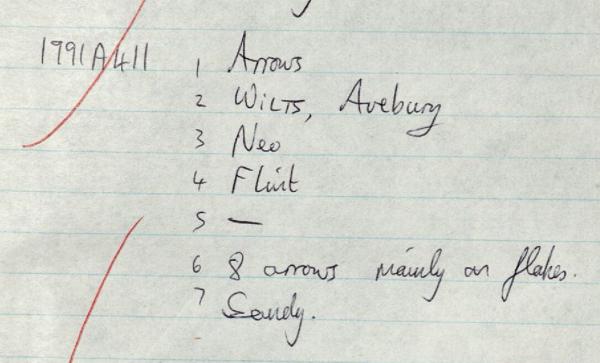 1991A411 1 Arrows
2 WILTS, Avebury
3 Neo
4 Flint
5 —
6 8 arrows mainly on flakes.
7 Sandy.